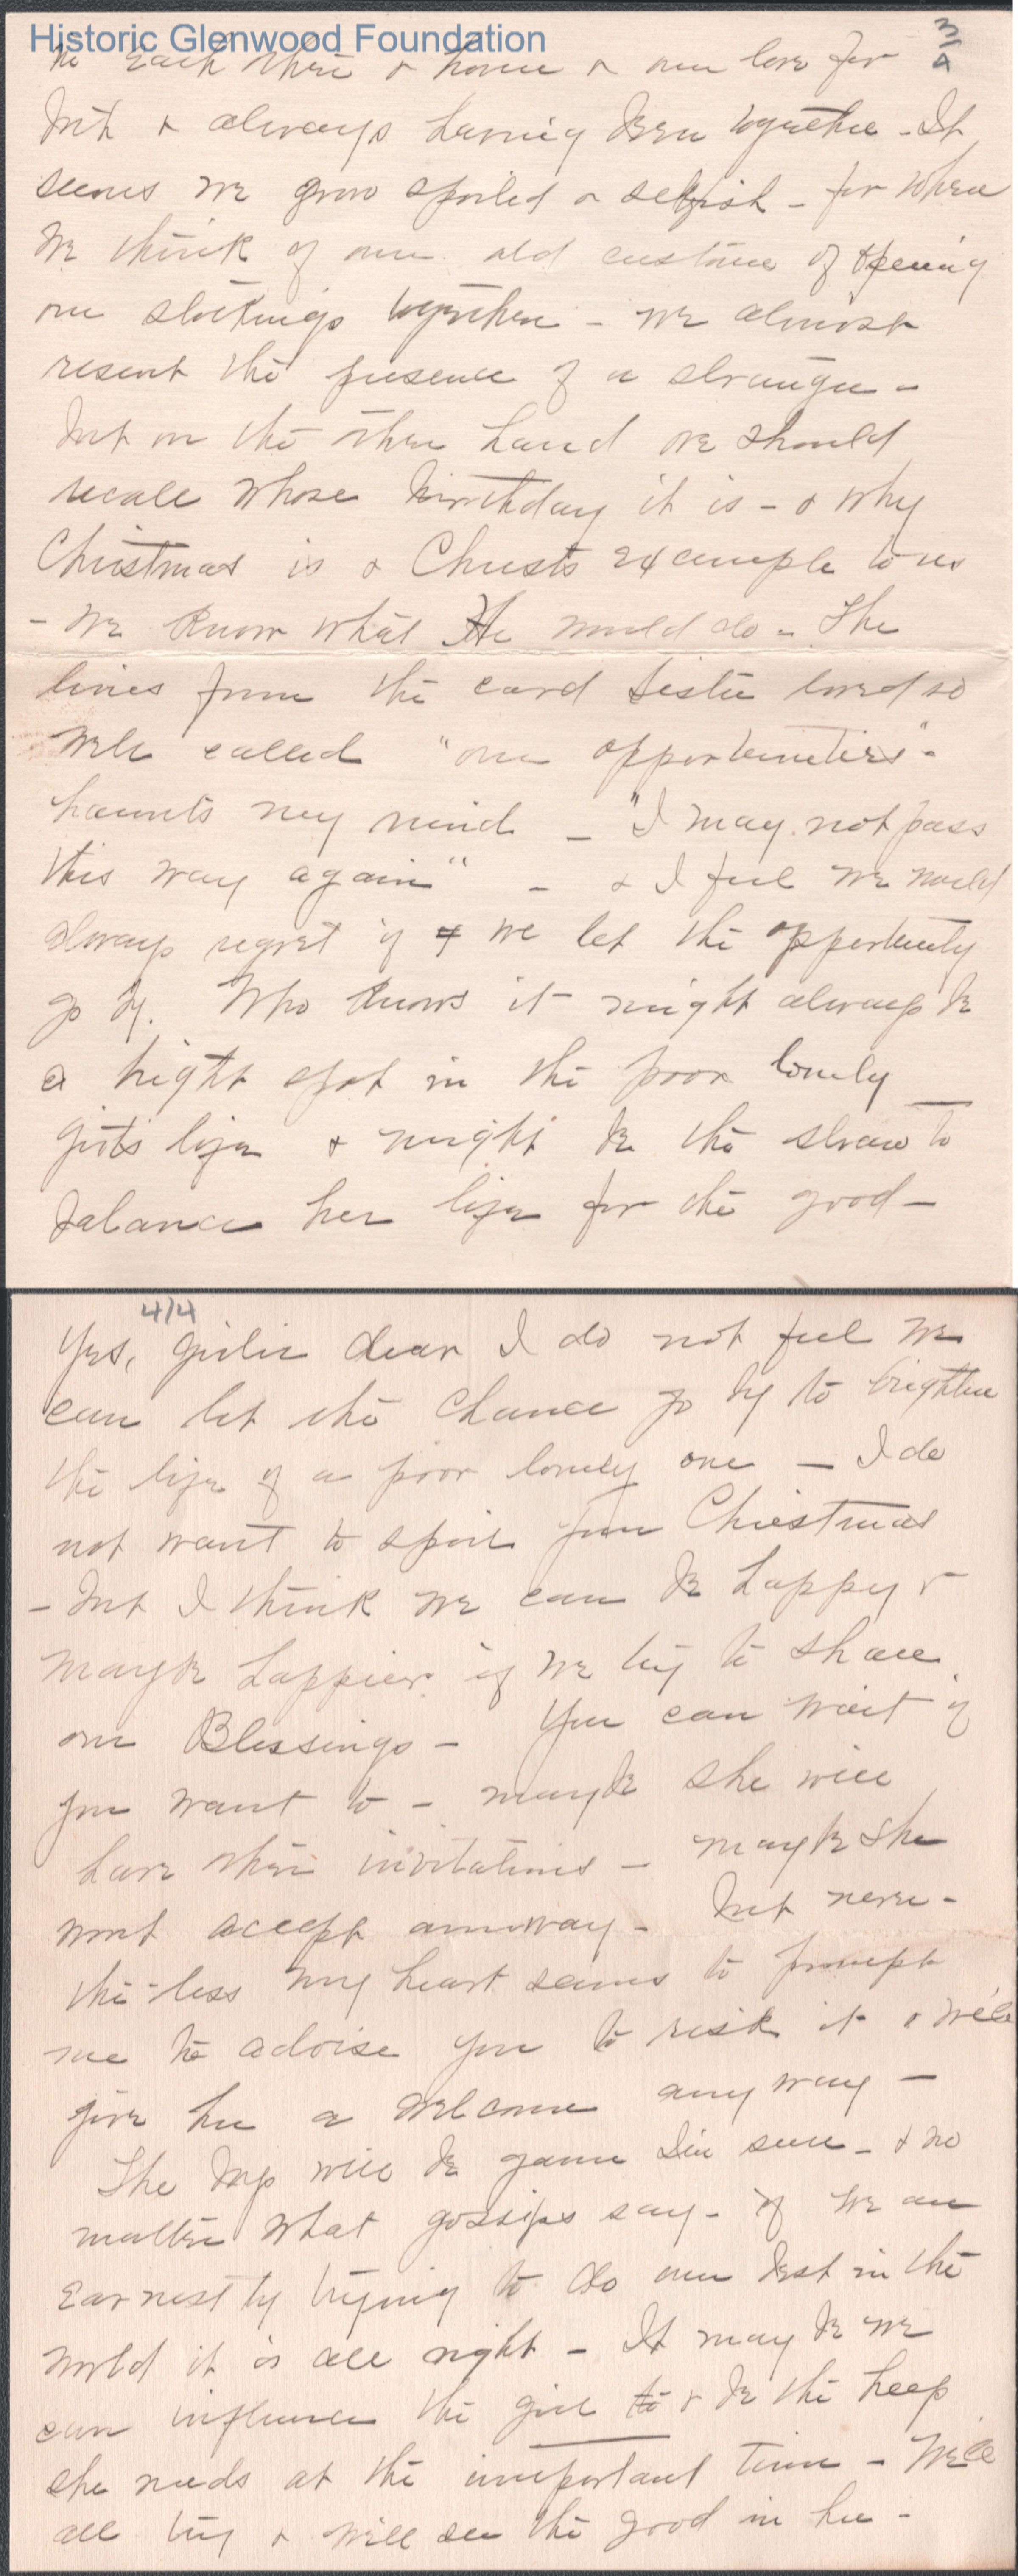 Historic Glenwood Foundation
3/4
to each other & home & our love for
but & always having been together - It
seems we grow spoiled & selfish - for when
we think of our old custom of opening
our stockings together - we almost
resent the presence of a stranger -
but on the other hand we should
recall whose birthday it is - & why
Christmas is & Christs example to us
- We know what He would do - The
lines from the card Sister loved so
well called "our opportunities" -
haunts my mind - "I may not pass
this way again" - & I feel we would
always regret if we let the opportunity
go by. Who knows it might always be
a bright spot in the poor lonely
girls life & might be the straw to
balance her life for the good -
4/4
Yes, Girlie dear I do not feel we
can let the chance go by to brighten
the life of a poor lonely one - I do
not want to spoil your Christmas
- but I think we can be happy &
maybe happier if we try to share
our Blessings - You can wait if
you want to - maybe she will
have other invitations - maybe she
wont accept anyway - but never-
the-less my heart seems to prompt
me to advise you to risk it & we'll
give her a welcome any way -
The boys will be game I'm sure - & no
matter what gossips say - if we are
earnestly trying to do our best in the
world it is all right - It may be we
can influence the girl to & be the help
she needs at the important time - We'll
all try & will see the good in her -